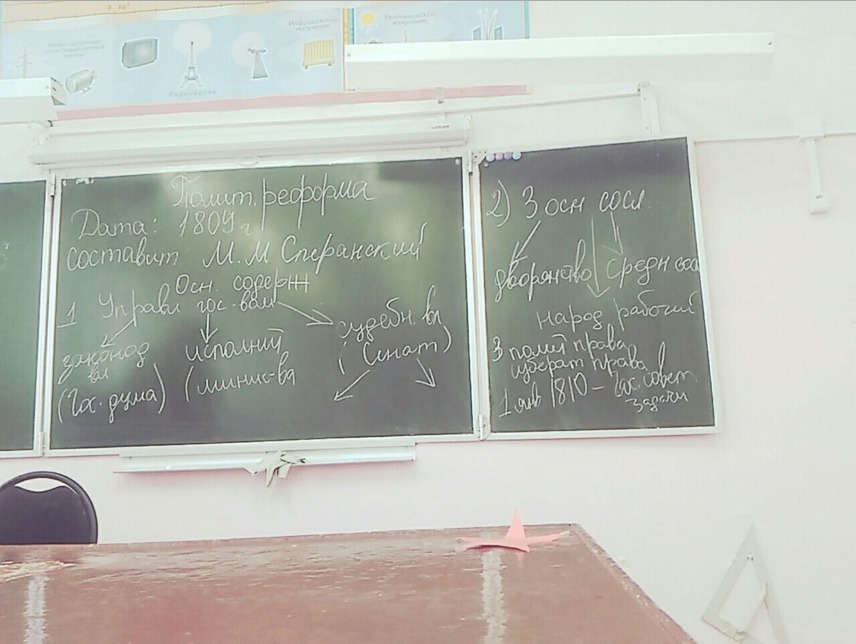 Инфракрасное
излучение
Рентгеновское
излучение
Радиоволны
Полит. реформа
Дата: 1809 г
составит М.М Сперанский
Осн. содерж
1 Управл гос-вом
законод
вл
(Гос. дума)
исполнит
(минис-ва
судебн. вл
(Сенат)
2) 3 осн сосл
дворянство средн сос
народ рабочий
3 полит права
избират права
1 янв 1810 – Гос. совет
задачи